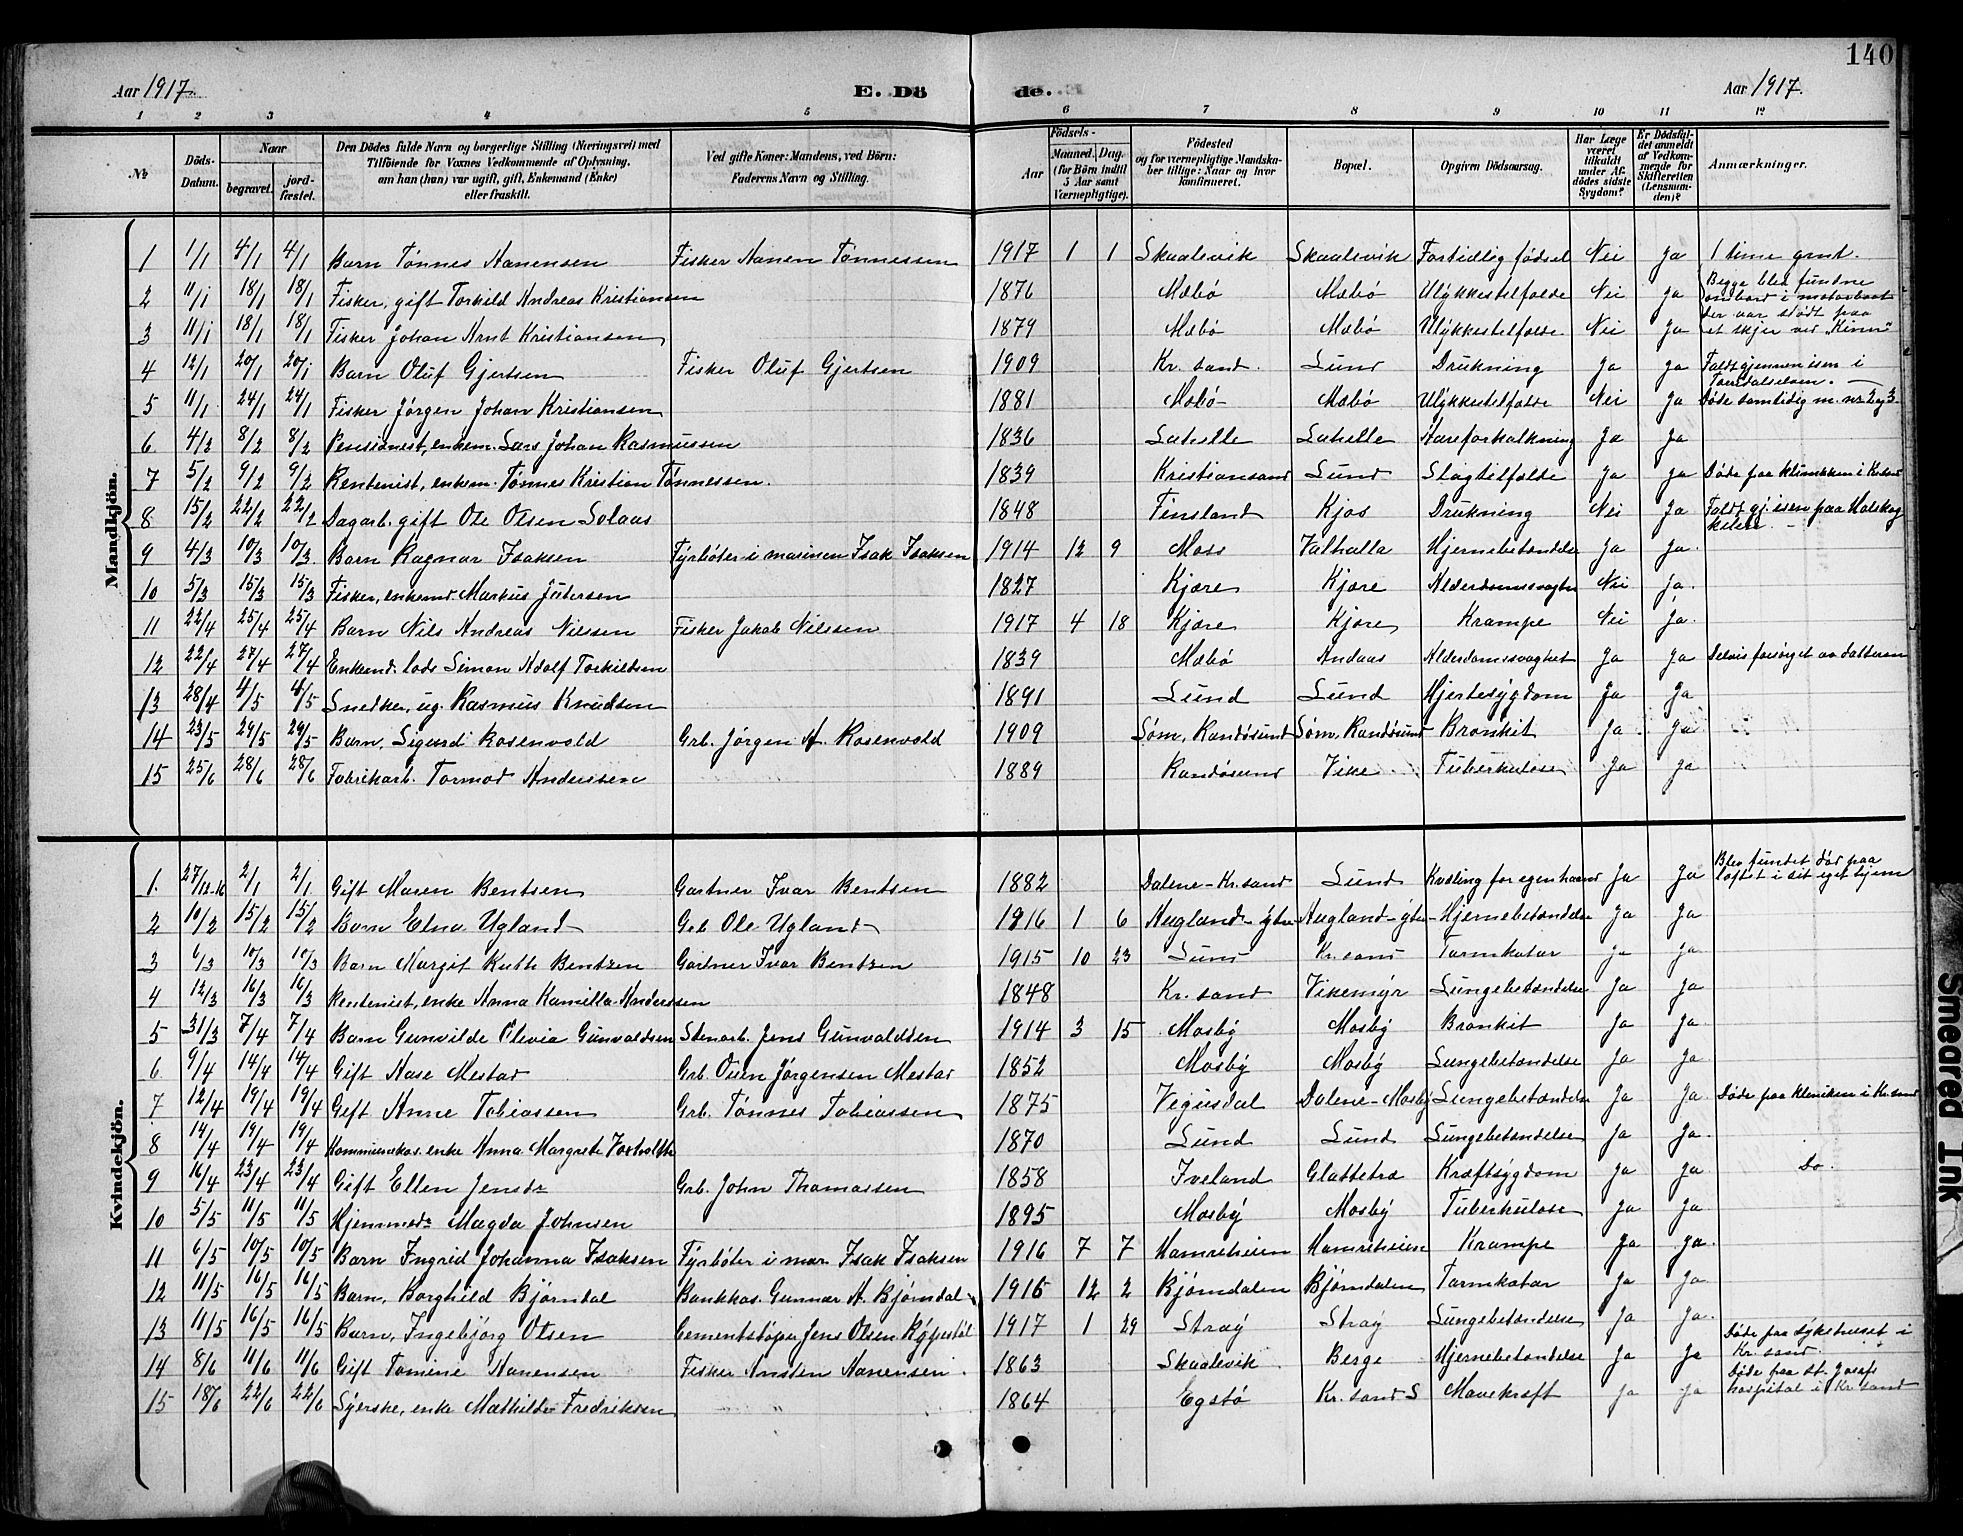 140
Aar 1917. E. Dö de. Aar 1917.
1 2 3 4 5 6 7 8 9 10 11 12
№ Döds-Datum. Naar begravet. jord-fæstet. Den Dödes fulde Navn og borgerlige Stilling (Næringsvei) med Tilföiende for Voxnes Vedkommende af Oplysning, om han (hun) var ugift, gift, Enkemand (Enke) eller fraskilt. Ved gifte Koner: Mandens, ved Börn: Faderens Navn og Stilling. Födsels- Aar Maaned. Dag. (for Börn indtil 5 Aar samt Værnepligtige). Födested og for værnepligtige Mandska-ber tillige: Naar og hvor konfirmeret. Bopæl. Opgiven Dödsaarsag. Har Læge været tilkaldt under Af-dödes sidste Sygdom? Er Dödsfal-det anmeldt af Vedkom-mende for Skifteretten (Lensman-den)? Anmærkninger.
Mandkjön.
1 1/1 4/1 4/1 Barn Tønnes Hanensen Fisker Hanen Tønnessen 1917 1 1 Skaalevik Skaalevik Fortidlig fødsel Nei Ja 1 time gml.
2 11/1 18/1 18/1 Fisker, gift Torkild Andreas Kristiansen 1876 Mæbø Mæbø Ulykkestilfælde Nei Ja Begge blev fundne ombord i motorbaat
3 11/1 18/1 18/1 Fisker Johan Arnt Kristiansen 1879 Mæbø Mæbø Ulykkestilfælde Nei Ja der var stødt paa et skjer ved "Kinn"
4 12/1 20/1 20/1 Barn Oluf Gjertsen Fisker Oluf Gjertsen 1909 Kr.sand. Lund Drukning Ja Ja Faldt gjennem isen i
5 11/1 24/1 24/1 Fisker Jørgen Johan Kristiansen 1881 Mæbø Mæbø Ulykkestilfælde Nei Ja Døde samtidig m. nr 2 og 3
6 4/2 8/2 8/2 Pensionist, enkem. Lars Johan Rasmussen 1836 Lahelle Lahelle Aareforkalkning Ja Ja
7 5/2 9/2 9/2 Rentenist, enkem. Tønnes Kristian Tønnessen. 1839 Kristiansand Lund Slagtilfælde Ja Ja Døde paa klinikken i Kr.sand
8 15/2 22/2 22/2 Dagarb. gift Ole Olsen Solaas 1848 Finsland Kjos Drukning Nei Ja Faldt gj. isen paa
9 4/3 10/3 10/3 Barn Ragnar Isaksen Fyrbøter i marinen Isak Isaksen 1914 12 9 Moss Valhalla Hjernebetændelse Ja Ja.
10 5/3 15/3 15/3 Fisker, enkemd. Markus 1827 Kjære Kjære Alderdomssvaghet Nei Ja.
11 22/4 25/4 25/4 Barn Nils Andreas Nilssen Fisker Jakob Nilssen 1917 4 18 Kjære Kjære Krampe Nei Ja.
12 22/4 27/4 27/4 Enkemd. lods Simon Adolf Torkildsen 1839 Mæbø Andaas Alderdomssvaghet Ja Ja Delvis forsørget av datteren
13 28/4 4/5 4/5 Snedker, ug. Rasmus Knudsen 1891 Lund Lund Hjertesygdom Ja Ja
14 23/5 29/5 29/5 Barn, Sigurd Rosenvold Grb. Jørgen A. Rosenvold 1909 Søm, Randøsund Søm, Randøsund Bronkit Ja Ja
15 25/6 28/6 28/6 Fabrikarb. Tormod Anderssen 1889 Randøsund Vike Tuberkulose Ja Ja
Kvindekjön.
1. 27/12-16 2/1 2/1 Gift Maren Bentsen Gartner Ivar Bentsen 1882 Dalene - Kr.sand Lund Kvæling for egen haand Ja Ja Blev fundet død paa loftet i sit eget hjem
2 10/2 15/2 15/2 Barn Elna Ugland Grb Ole Ugland 1916 1 6 Augland - ytre Augland - ytre Hjernebetændelse Ja Ja
3 6/3 10/3 10/3 Barn Margit Ruth Bentzen Gartner Ivar Bentzen 1915 10 23 Lund Kr.sand Tarmkatar Ja Ja
4 12/3 16/3 16/3 Rentenist, enke Anna Kamilla Anderssen 1848 Kr.sand Vikemyr Lungebetændelse Ja Ja
5 31/3 7/4 7/4 Barn Gunvilde Olivia Gunvaldsen Stenarb. Jens Gunvaldsen 1914 3 15 Mosby Mosby Bronkit Ja Ja
6 9/4 14/4 14/4 Gift Aase Mestad Grb. Osen Jørgensen Mestad 1852 Mosby Mosby Lungebetændelse Ja Ja
7 12/4 19/4 19/4 Gift Anne Tobiassen Grb. Tønnes Tobiassen 1875 Vegusdal Dalene - Mosby Lungebetændelse Ja Ja Døde paa kliniken i Kr.sand
8 14/4 19/4 19/4 enke Anna Margrete 1870 Lund Lund Lungebetændelse Ja Ja.
9 16/4 23/4 23/4 Gift Ellen Jensdr Grb. John Thomassen 1858 Iveland Glattetræ Kræftsygdom Ja Ja Do.
10 5/5 11/5 11/5 Hjemmedr Magda Johnsen 1895 Mosby Mosby Tuberkulose Ja Ja
11 6/5 10/5 10/5 Barn Ingrid Johanna Isaksen Fyrbøter i mar. Isak Isaksen 1916 7 7 Hamreheien Hamreheien Krampe Ja Ja.
12 11/5 16/5 16/5 Barn, Borghild Bjørndal Bankkas. Gunnar A. Bjørndal 1916 12 2 Bjørndalen Bjørndalen Tarmkatar Ja Ja.
13 11/5 16/5 16/5 Barn, Ingebjørg Olsen Cementstøper Jens Olsen Rypestøl 1917 1 29 Stray Stray Lungebetændelse Ja Ja.
14 8/6 11/6 11/6 Gift Tomine Hanensen Fisker Ansten Hanensen. 1863 Skaalevik Berge Hjernebetændelse Ja Ja Døde paa sykehuset i Kr.sand.
15 18/6 22/6 22/6 Syerske, enke Mathilde Fredriksen 1864 Egstø Kr.sand S Mavekræft Ja Ja Døde paa St. Josefs hospital i Kr.sand
Smeared Ink